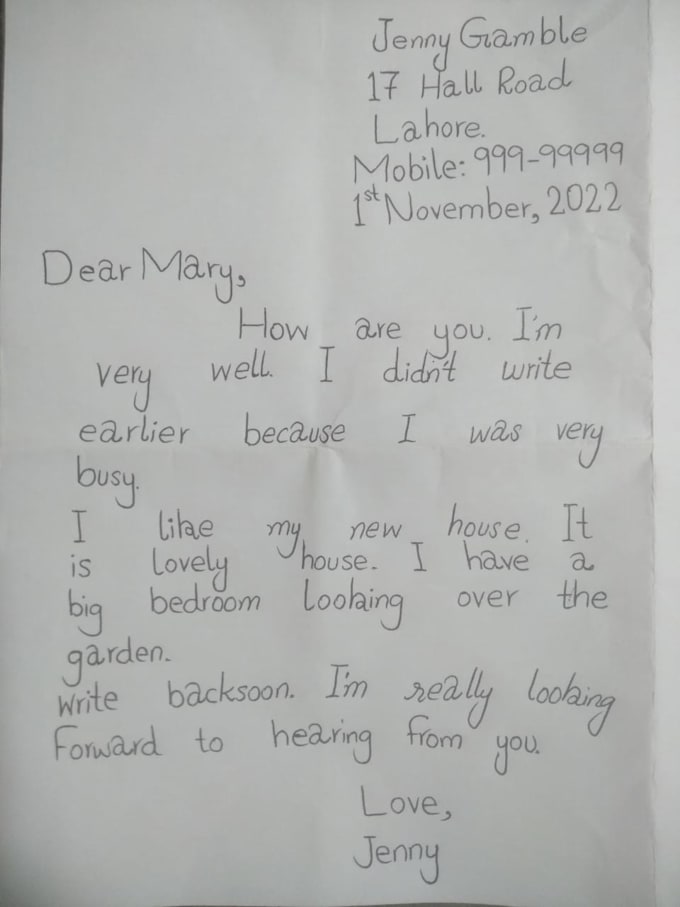 Jenny Gamble
17 Hall Road
Lahore.
Mobile: 999-99999
1st November, 2022
Dear Mary,
How are you. I'm
very well. I didn't write
earlier because I was very
busy.
I like my new house. It
is lovely house. I have a
big bedroom looking over the
garden.
Write backsoon. I'm really looking
Forward to hearing from you.
Love,
Jenny